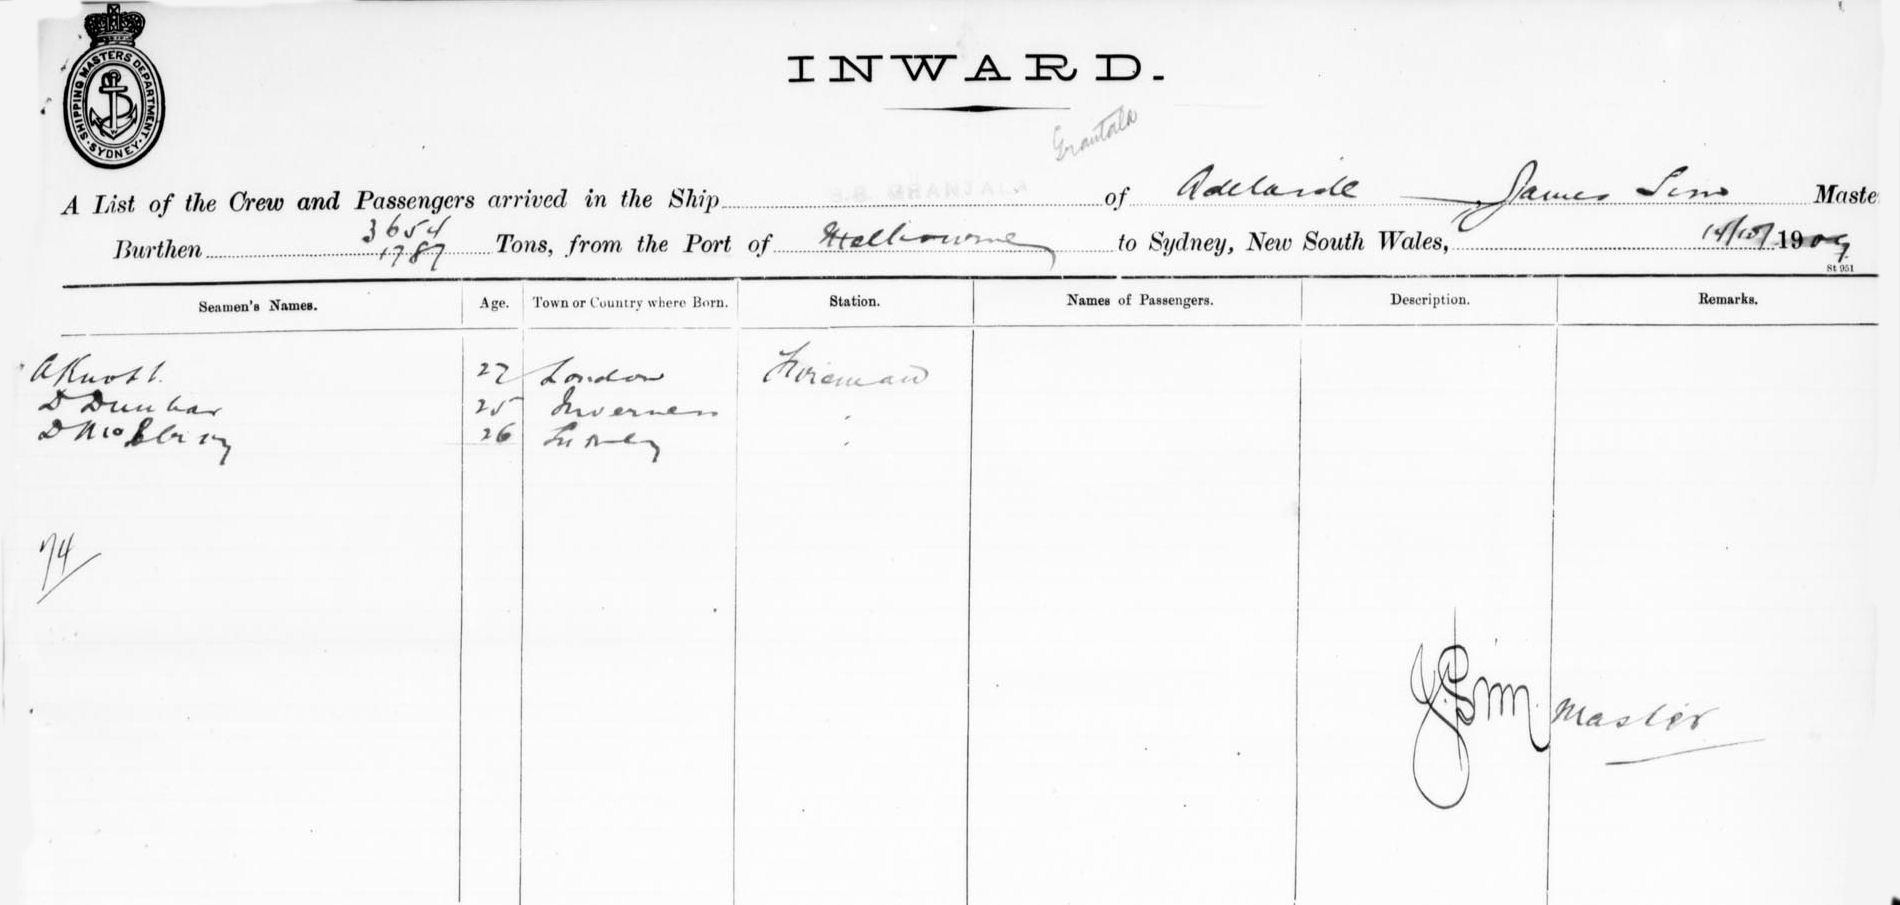 SHIPPING MASTERS DEPARTMENT
SYDNEY
INWARD.
Grantala
A List of the Crew and Passengers arrived in the Ship of Adelaide James Sim Maste
Burthen 3654 1787 Tons, from the Port of Melbourne to Sydney, New South Wales, 14/10/ 1909
St 951
Seamen's Names. Age. Town or Country where Born. Station. Names of Passengers. Description. Remarks.
A Knott 27 London Fireman
D Dunbar 25 Inverness "
D 26 Sydney "
74
J. Sim Master